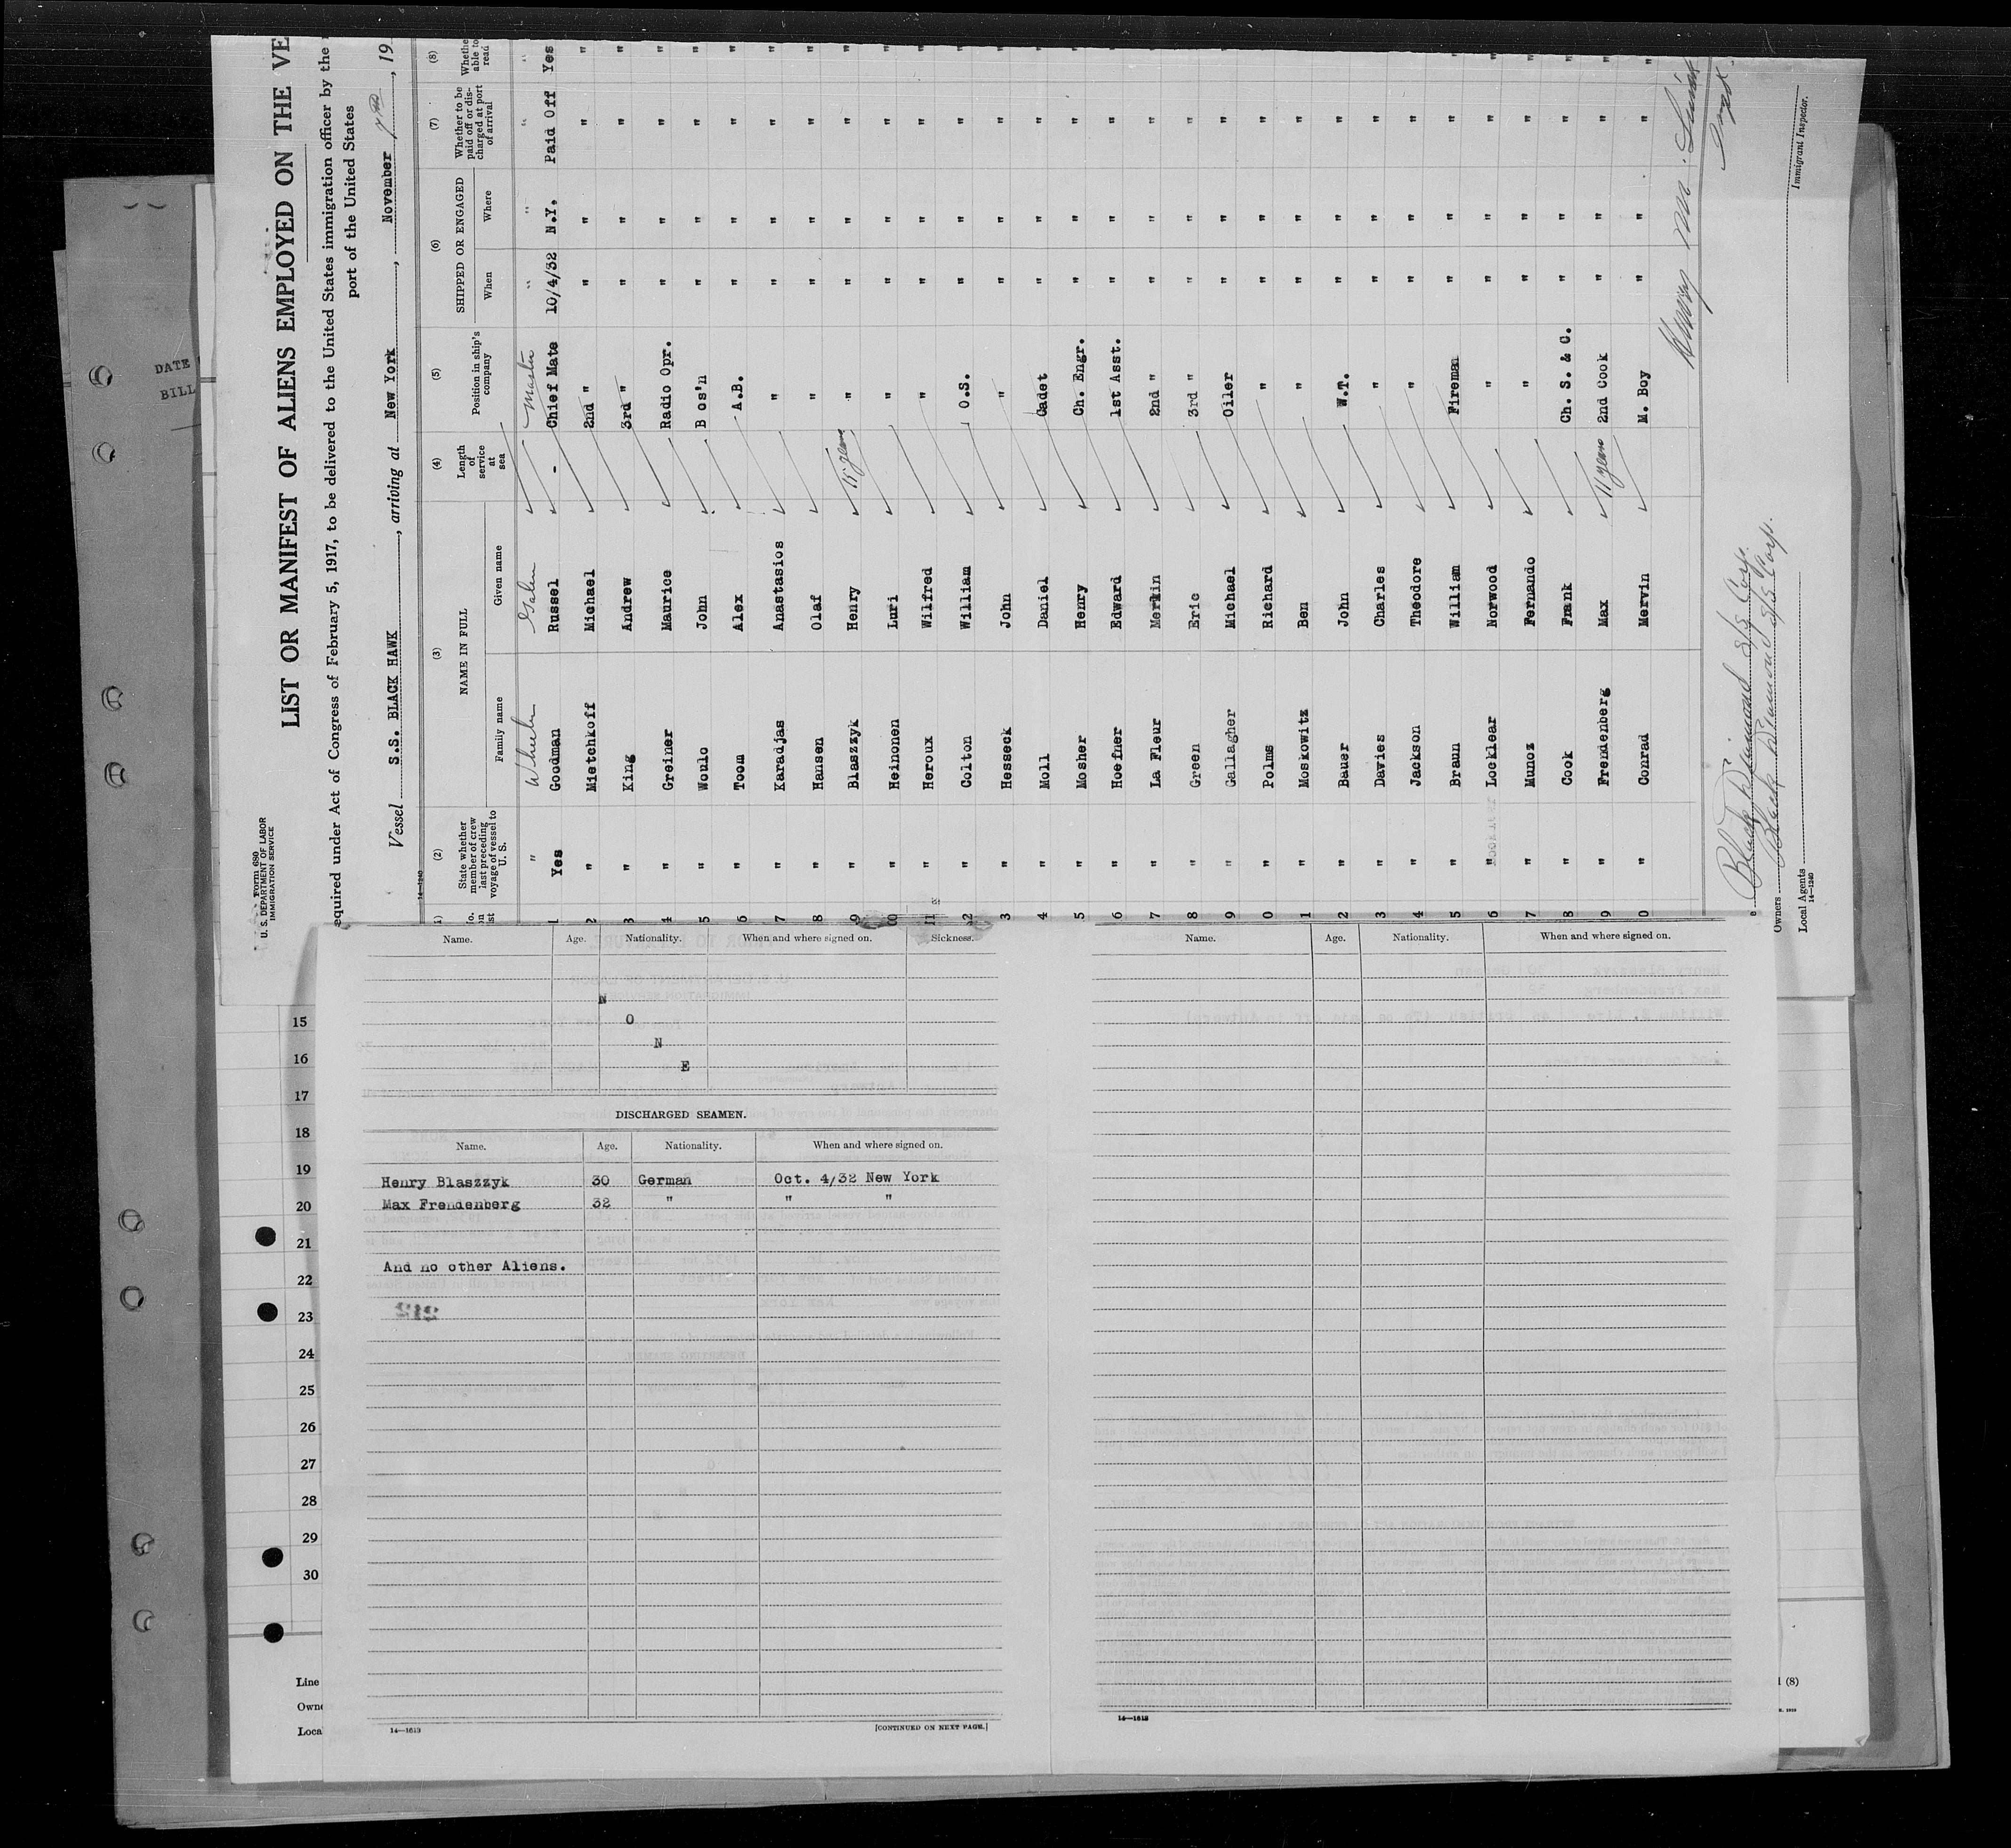 Form 680
U. S. DEPARTMENT OF LABOR
IMMIGRATION SERVICE
LIST OR MANIFEST OF ALIENS EMPLOYED ON THE VE
equired under Act of Congress of February 5, 1917, to be delivered to the United States immigration officer by the
port of the United States
Vessel S.S. BLACK HAWK, arriving at New York, November, 19
14—1240
(2) (3) (4) (5) (6) (7) (8)
State whether member of crew on last preceding voyage of vessel to U. S. NAME IN FULL Length of service at sea Position in ship's company SHIPPED OR ENGAGED Whether to be paid off or discharged at port of arrival Whether able to read
Family name Given name When Where
" Wheeler Galen Master " " " "
1 Yes Goodman Russel - Chief Mate 10/4/32 N.Y. Paid Off Yes
2 " Mietchkoff Michael 2nd " " " " "
3 " King Andrew 3rd " " " " "
4 " Greiner Maurice Radio Opr. " " " "
5 " Woulo John Bos'n " " " "
6 " Toom Alex A.B. " " " "
7 " Karadjas Anastasios " " " " "
8 " Hansen Olaf " " " " "
9 " Blaszzyk Henry 15 years " " " " "
10 " Heinonen Luri " " " " "
11 " Heroux Wilfred " " " " "
2 " Colton William O.S. " " " "
3 " Hesseck John " " " " "
4 " Moll Daniel Cadet " " " "
5 " Mosher Henry Ch. Engr. " " " "
6 " Hoefner Edward 1st Asst. " " " "
7 " La Fleur Merkin 2nd " " " " "
8 " Green Eric 3rd " " " " "
9 " Gallagher Michael Oiler " " " "
0 " Polms Richard " " " " "
1 " Moskowitz Ben " " " " "
2 " Bauer John W.T. " " " "
3 " Davies Charles " " " " "
4 " Jackson Theodore " " " " "
5 " Braun William Fireman " " " "
6 " Locklear Norwood " " " " "
7 " Munoz Fernando " " " " "
8 " Cook Frank Ch. S. & C. " " " "
9 " Frendenberg Max 11 years 2nd Cook " " " "
0 " Conrad Mervin M. Boy " " " "
Black Diamond S/S Corp.
Owners Black Diamond S/S Corp.
Local Agents
14—1240
Immigrant Inspector.
DATE
BILL
Name. Age. Nationality. When and where signed on. Sickness.
N
O
N
E
DISCHARGED SEAMEN.
Name. Age. Nationality. When and where signed on.
Henry Blaszzyk 30 German Oct. 4/32 New York
Max Frendenberg 32 " " "
And no other Aliens.
14—1613
[CONTINUED ON NEXT PAGE.]
Name. Age. Nationality. When and where signed on.
14—1613
15
16
17
18
19
20
21
22
23
24
25
26
27
28
29
30
Line
Owne
Loca
(8)